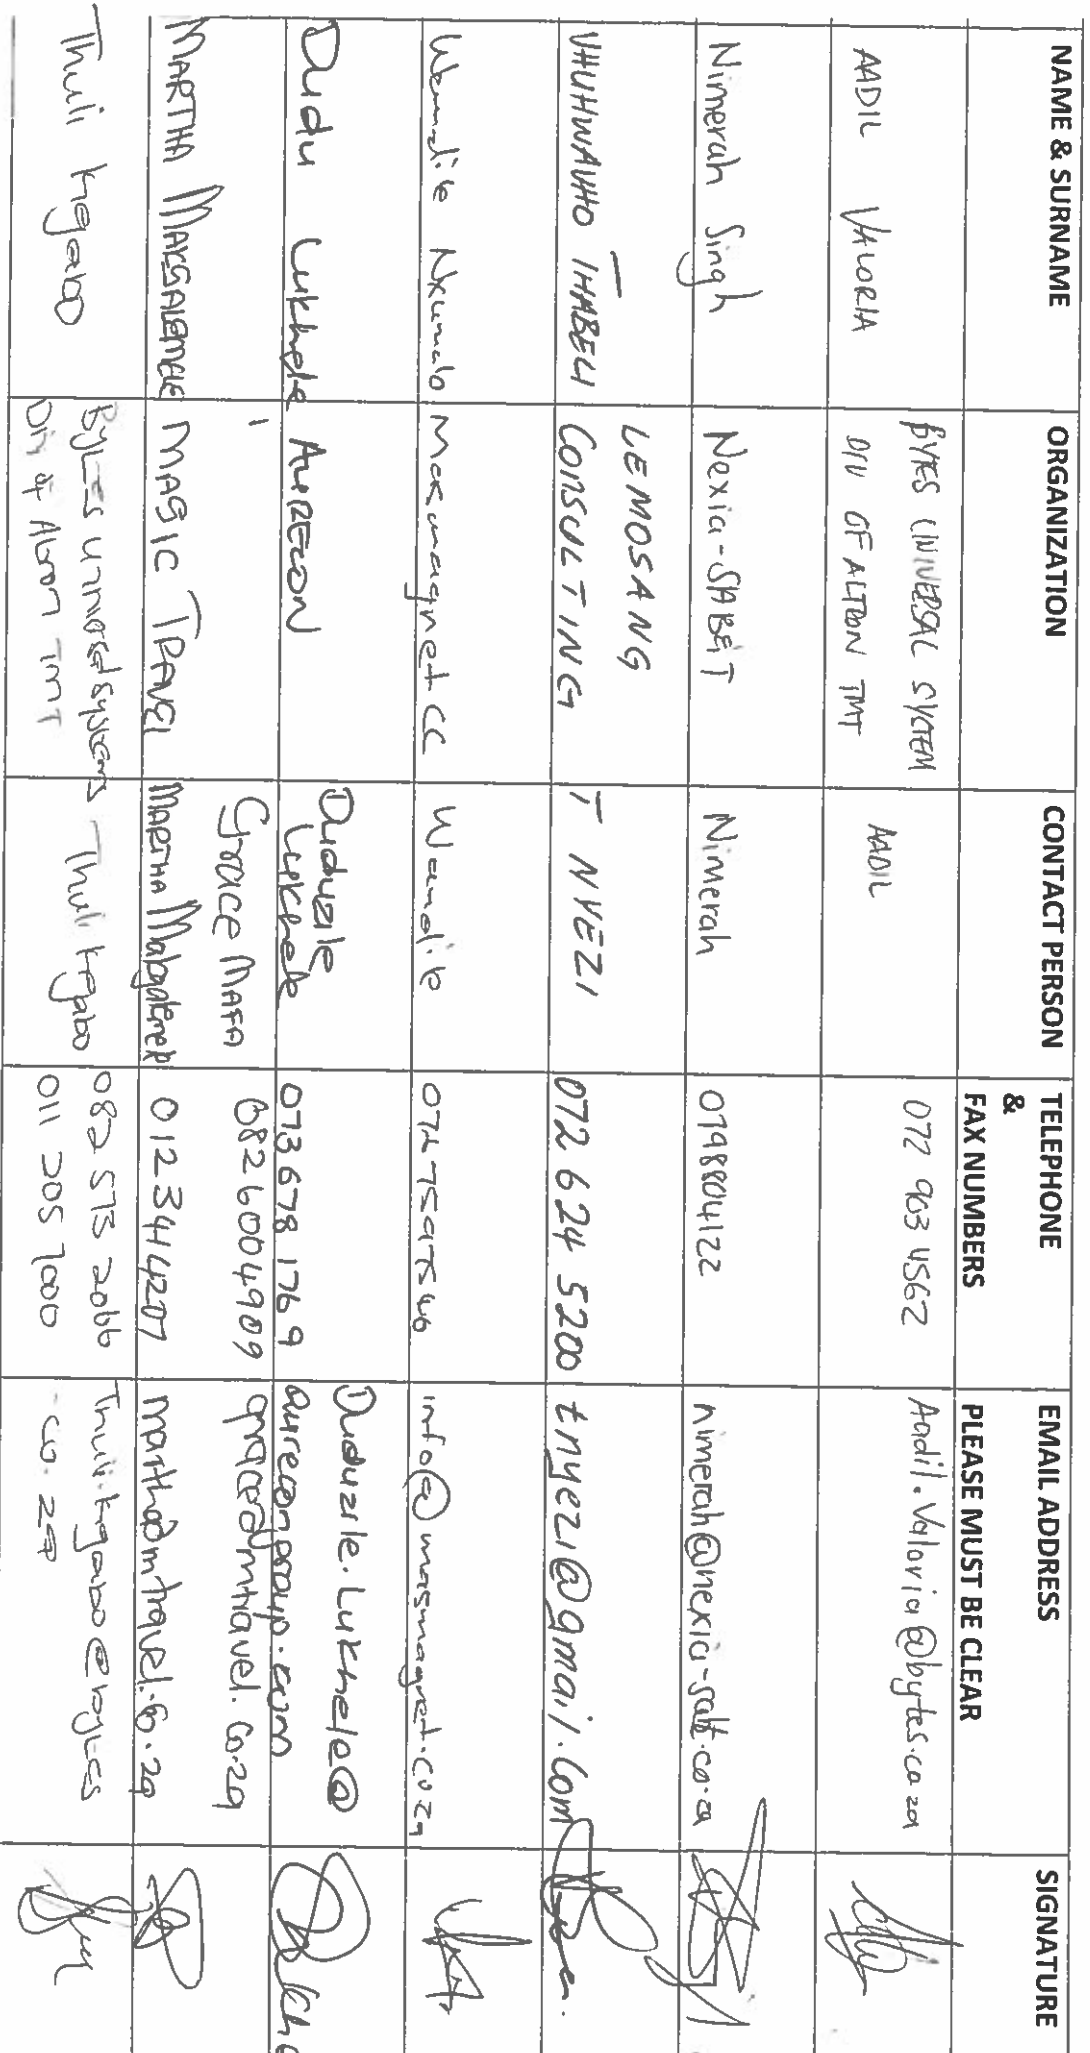 NAME & SURNAME
ORGANIZATION
CONTACT PERSON
TELEPHONE
&
FAX NUMBERS
EMAIL ADDRESS
PLEASE MUST BE CLEAR
SIGNATURE
AADIL VALORIA
BYTES UNIVERSAL SYSTEM
DIV OF ALTRON TMT
AADIL
072 903 4562
Aadil.Valoria@bytes.co.za
Nimerah Singh
Nexia-SAB&T
Nimerah
0798804122
nimerah@nexia-sabt.co.za
VHUHWAVHO THABELI
LEMOSANG
CONSULTING
T NYEZI
072 624 5200
tnyezi@gmail.com
Wandile Nxumalo
Masmagnet CC
Wandile
info@masmagnet.co.za
Dudu Lukhele
AURECON
Duduzile
Lukhele
073 678 1769
Duduzile.Lukhele@
aurecongroup.com
MARTHA
MAGIC TRAVEL
Grace MAFA
MARTHA
082 600 4909
012 341 4207
grace@mtravel.co.za
martha@mtravel.co.za
Thuli Kgabo
Bytes Universal Systems
Div of Altron TMT
Thuli Kgabo
011 205 7000
Thuli.kgabo@bytes
.co.za